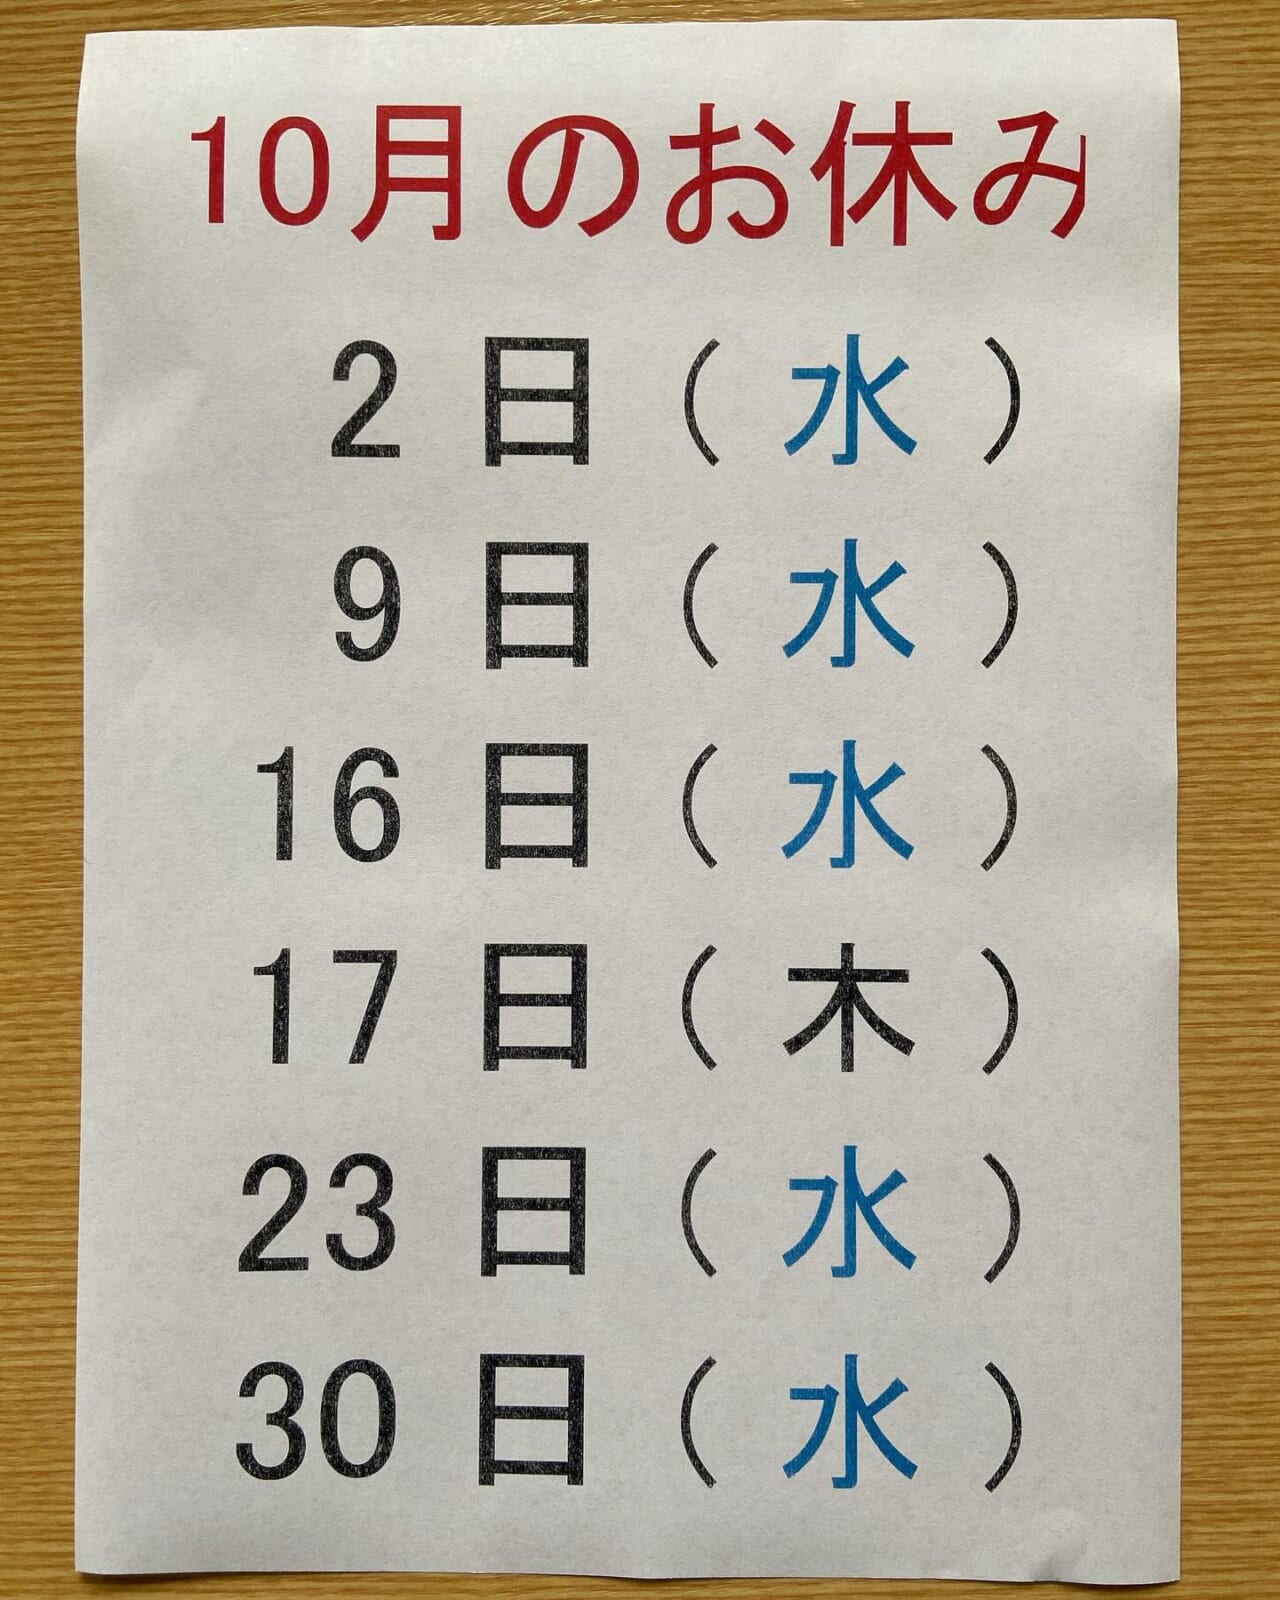 10月のお休み
2日(水)
9日(水)
16日(水)
17日(木)
23日(水)
30日(水)